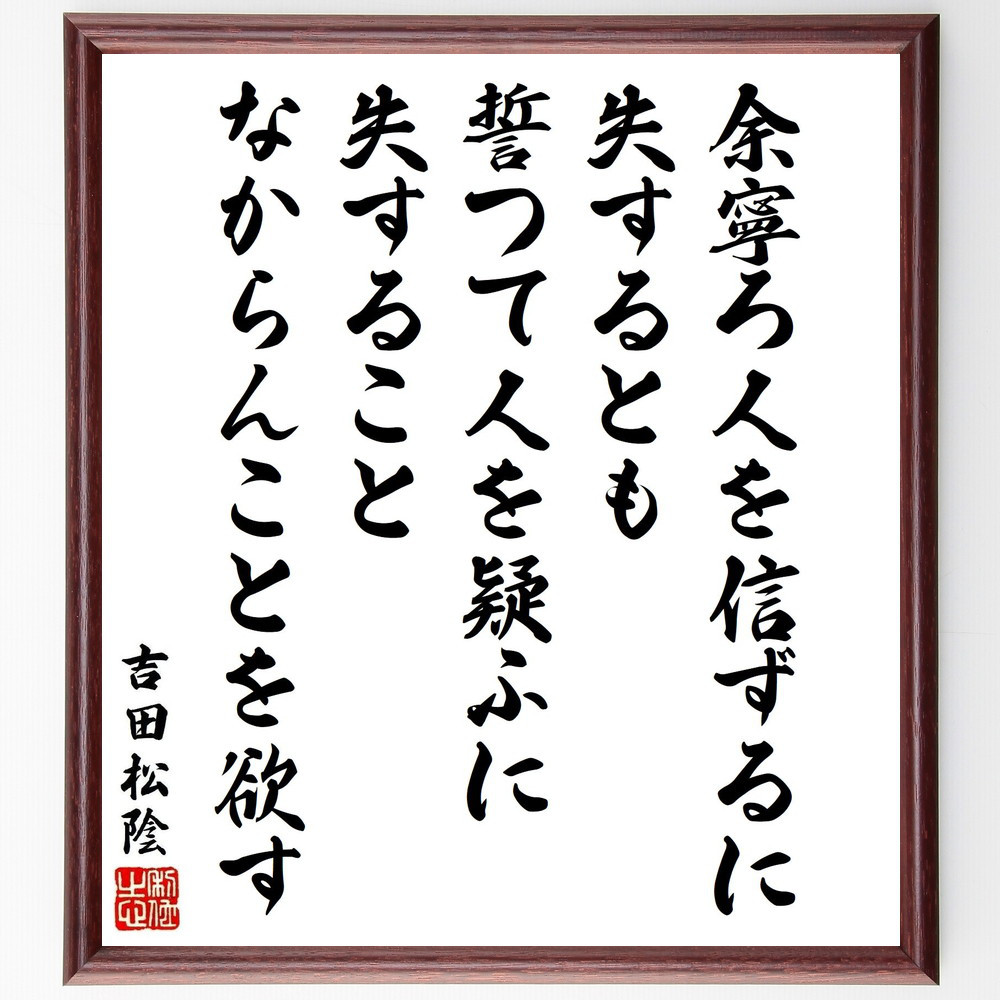 余寧ろ人を信ずるに
失するとも
誓つて人を疑ふに
失すること
なからんことを欲す
吉田松陰